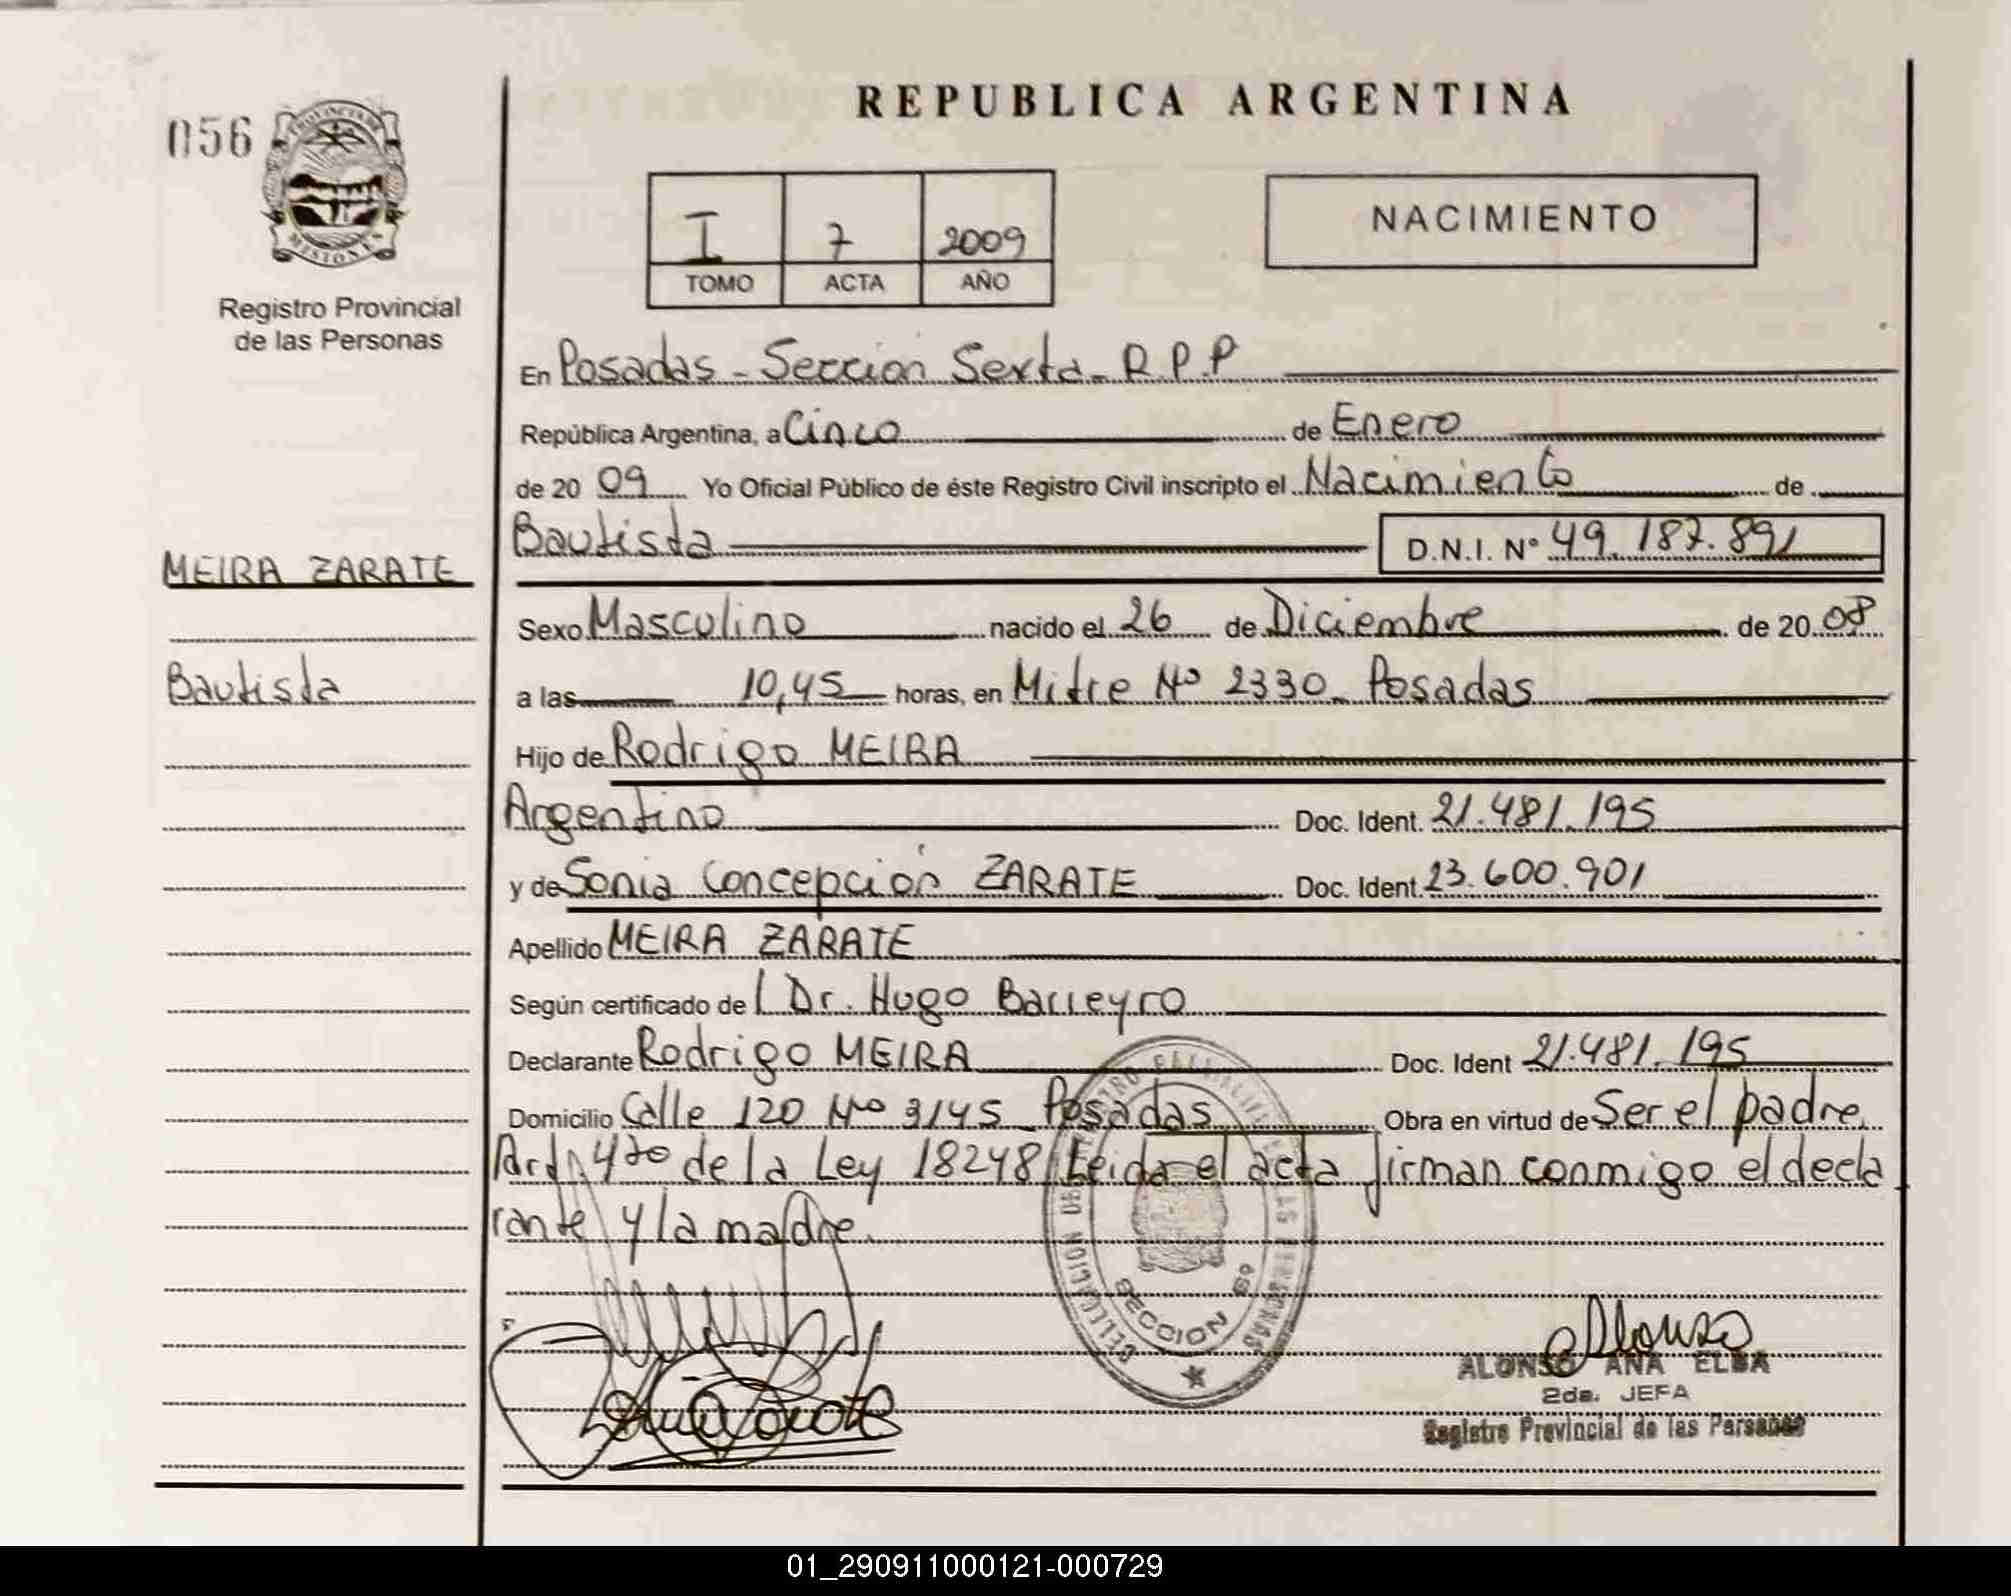 REPUBLICA ARGENTINA
056
PROVINCIA DE
MISIONES
Registro Provincial
de las Personas
I 7 2009
TOMO ACTA AÑO
NACIMIENTO
En Posadas - Sección Sexta - R.P.P
República Argentina, a Cinco de Enero
de 20 09 Yo Oficial Público de éste Registro Civil inscripto el Nacimiento de
Bautista D.N.I. Nº 49.187.891
MEIRA ZARATE
Sexo Masculino nacido el 26 de Diciembre de 20 08
Bautista
a las 10,45 horas, en Mitre Nº 2330 - Posadas
Hijo de Rodrigo MEIRA
Argentino Doc. Ident. 21.481.195
y de Sonia Concepción ZARATE Doc. Ident. 23.600.901
Apellido MEIRA ZARATE
Según certificado de l Dr. Hugo Barreyro
Declarante Rodrigo MEIRA Doc. Ident 21.481.195
Domicilio Calle 120 Nº 3145 - Posadas Obra en virtud de Ser el padre.
Art. 4to de la Ley 18248. Leida el acta firman conmigo el decla
rante y la madre.
SECCION 6º
ALONSO ANA ELBA
2da. JEFA
Registro Provincial de las Personas
01_290911000121-000729